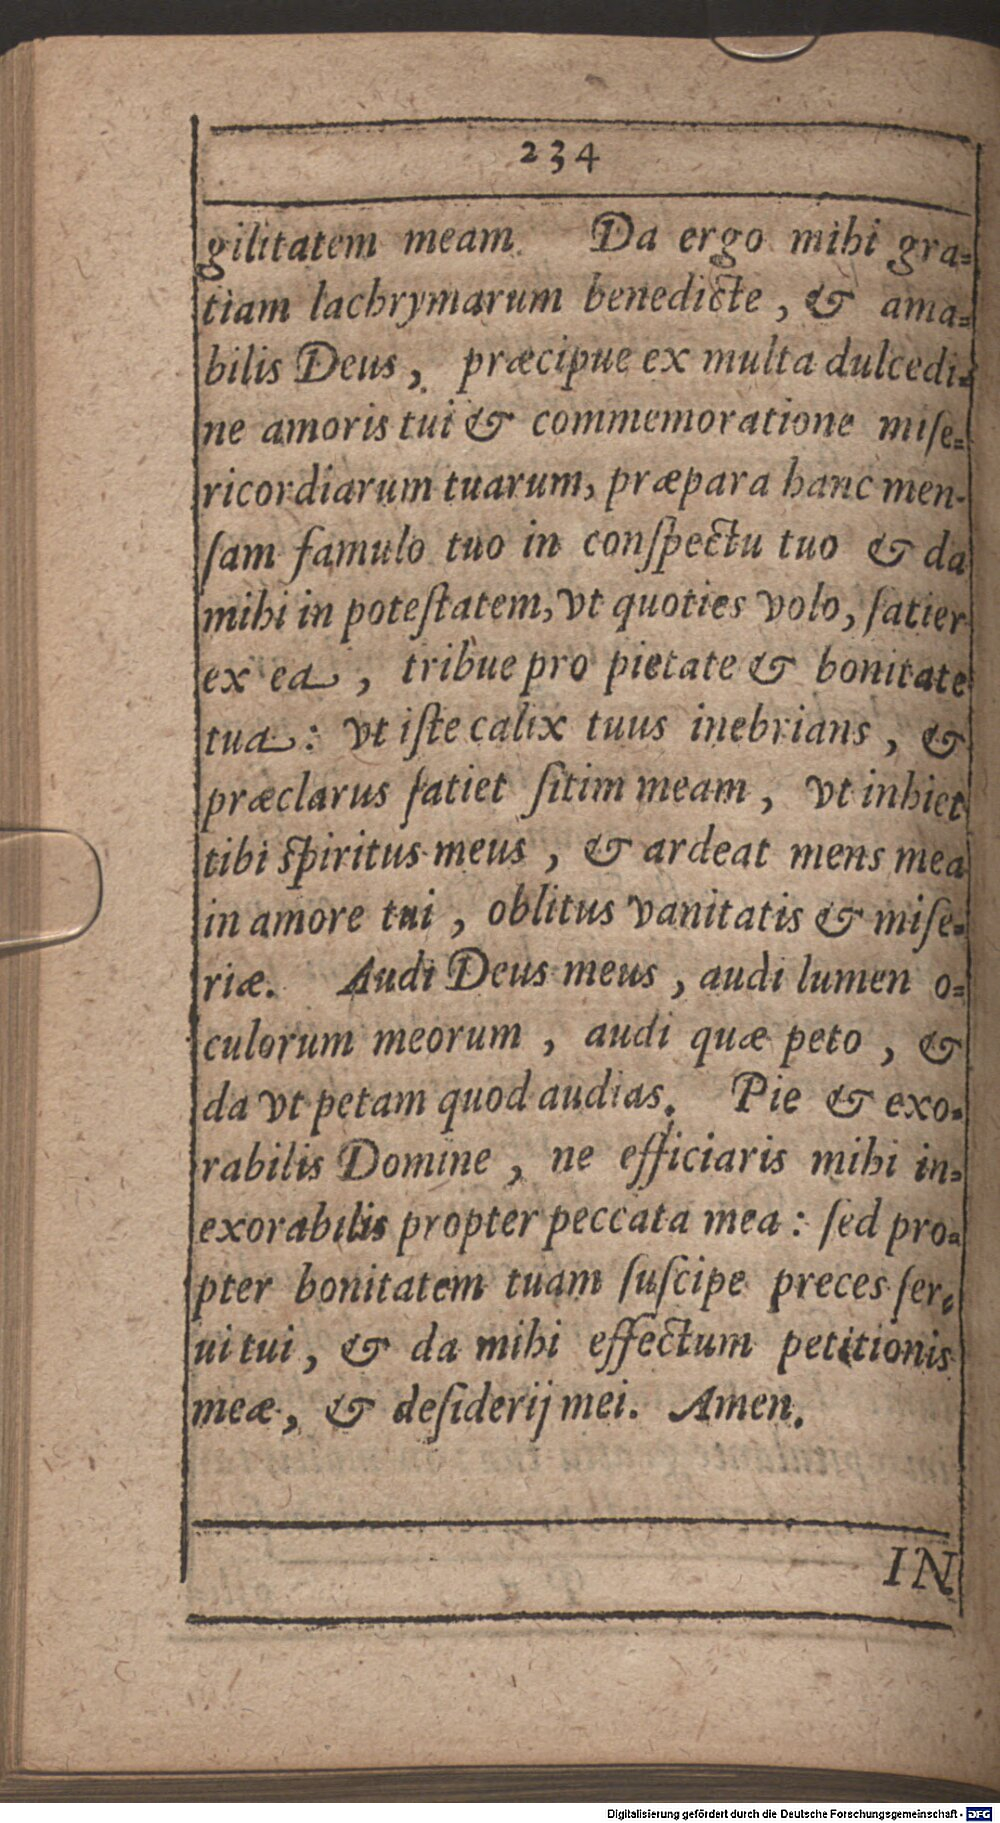 234
gilitatem meam. Da ergo mihi gra-
tiam lachrymarum benedicte, & ama-
bilis Deus, præcipue ex multa dulcedi-
ne amoris tui & commemoratione miſe-
ricordiarum tuarum, præpara hanc men-
ſam famulo tuo in conſpectu tuo & da
mihi in poteſtatem, vt quoties volo, ſatier
ex ea, tribue pro pietate & bonitate
tua: vt iſte calix tuus inebrians, &
præclarus ſatiet ſitim meam, vt inhiet
tibi ſpiritus meus, & ardeat mens mea
in amore tui, oblitus vanitatis & miſe-
riæ. Audi Deus meus, audi lumen o-
culorum meorum, audi quæ peto, &
da vt petam quod audias. Pie & exo-
rabilis Domine, ne efficiaris mihi in-
exorabilis propter peccata mea: ſed pro-
pter bonitatem tuam ſuſcipe preces ſer-
ui tui, & da mihi effectum petitionis
meæ, & deſiderij mei. Amen.
IN
Digitalisierung gefördert durch die Deutsche Forschungsgemeinschaft - DFG